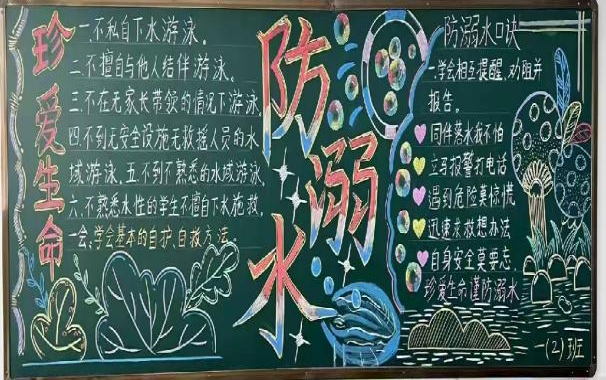 珍爱生命
一不私自下水游泳。
二不擅自与他人结伴游泳。
三不在无家长带领的情况下游泳
四.不到无安全设施无救援人员的水
域游泳.五不到不熟悉的水域游泳
六.不熟悉水性的学生不擅自下水施救.
一会:学会基本的自护,自救方法
防溺水
防溺水口诀
二学会相互提醒,劝阻并
报告。
同伴落水我不怕
立马报警打电话
遇到危险莫惊慌
迅速求救想办法
自身安全莫要忘
珍爱生命谨防溺水
一(2)班